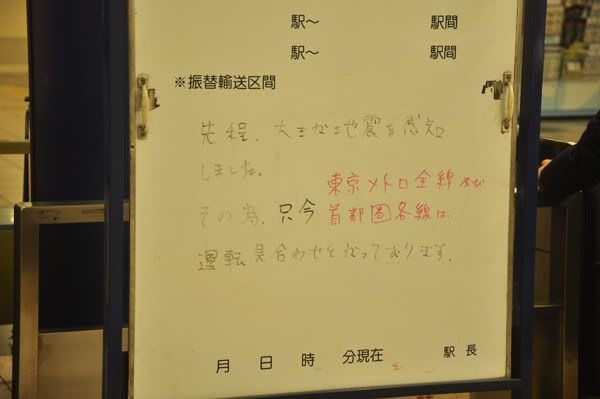 駅～ 駅間
駅～ 駅間
※振替輸送区間
先程、大きな地震を感知
しました。
東京メトロ全線及び
その為、只今首都圏各線は、
運転見合わせとなっております。
月 日 時 分現在 駅長